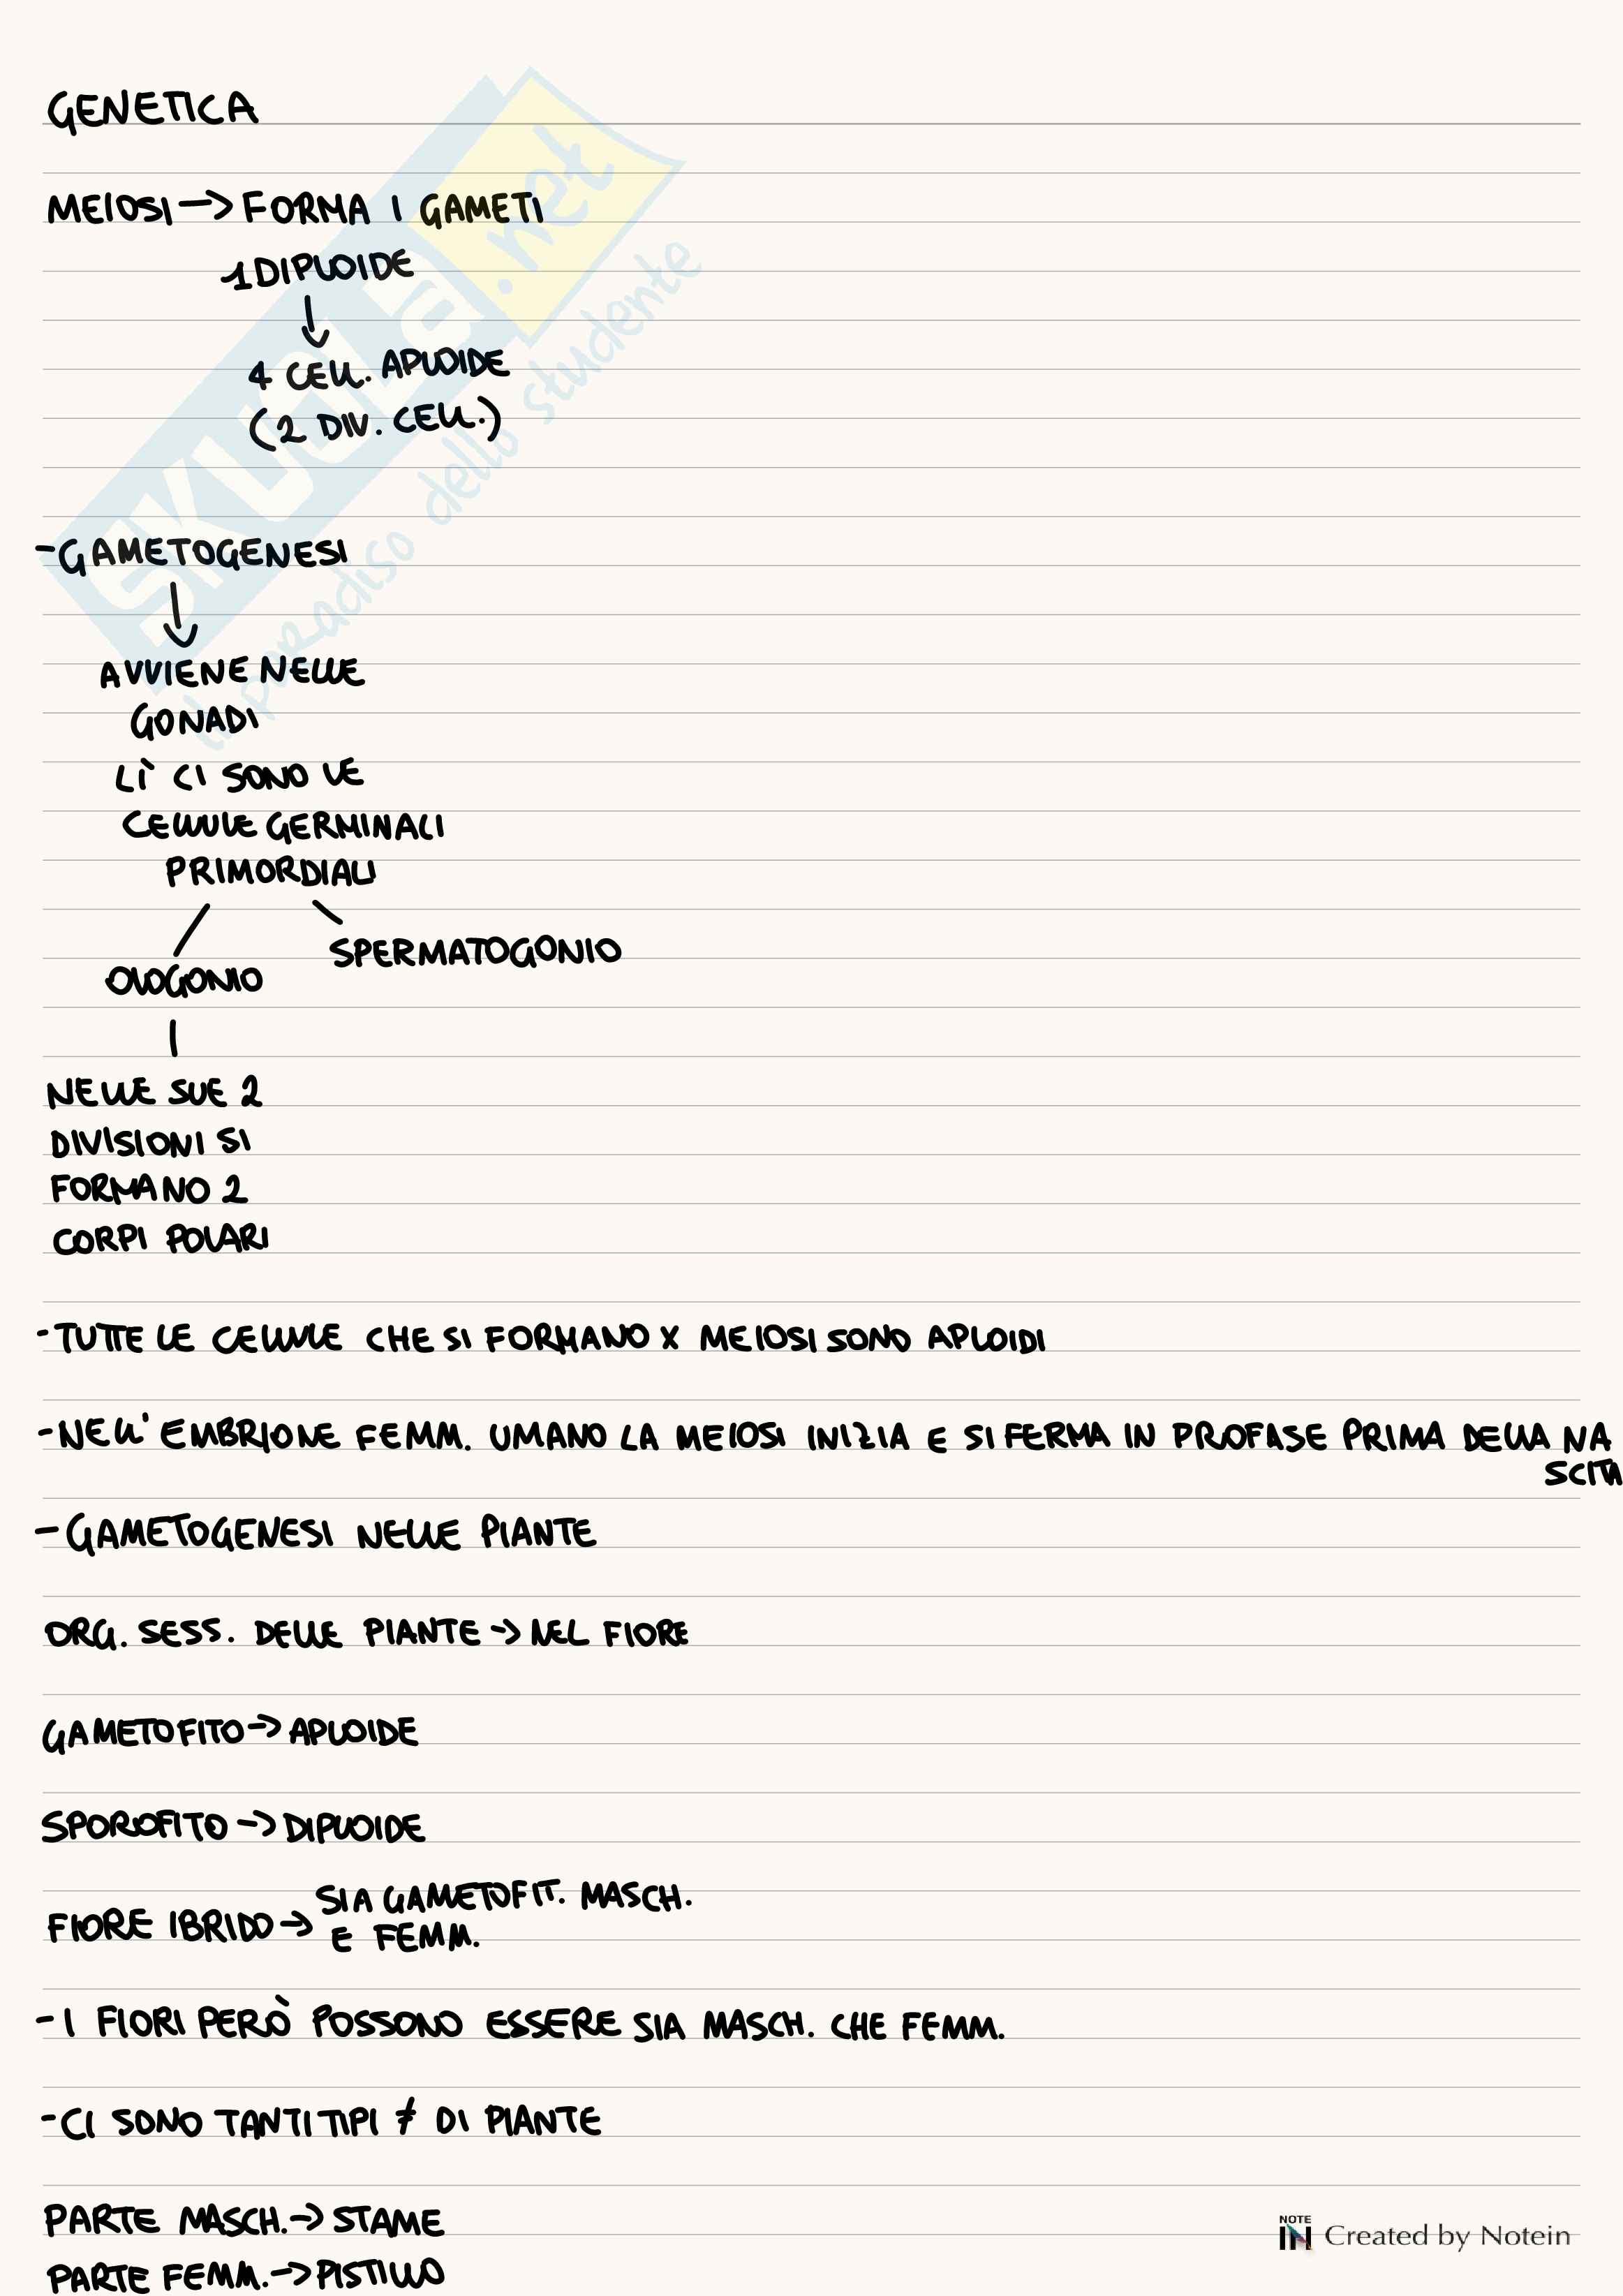 GENETICA
MEIOSI -> FORMA I GAMETI
1 DIPLOIDE
↓
4 CELL. APLOIDE
(2 DIV. CELL.)
- GAMETOGENESI
↓
AVVIENE NELLE
GONADI
LÌ CI SONO LE
CELLULE GERMINALI
PRIMORDIALI
OLOGONIO
SPERMATOGONIO
NELLE SUE 2
DIVISIONI SI
FORMANO 2
CORPI POLARI
- TUTTE LE CELLULE CHE SI FORMANO X MEIOSI SONO APLOIDI
- NELL' EMBRIONE FEMM. UMANO LA MEIOSI INIZIA E SI FERMA IN PROFASE PRIMA DELLA NA
SCITA
- GAMETOGENESI NELLE PIANTE
ORG. SESS. DELLE PIANTE -> NEL FIORE
GAMETOFITO -> APLOIDE
SPOROFITO -> DIPLOIDE
FIORE IBRIDO -> SIA GAMETOFIT. MASCH.
E FEMM.
- I FIORI PERÒ POSSONO ESSERE SIA MASCH. CHE FEMM.
- CI SONO TANTI TIPI ≠ DI PIANTE
PARTE MASCH. -> STAME
PARTE FEMM. -> PISTILLO
SKUOLA.net
il paradiso dello studente
NOTE IN Created by Notein